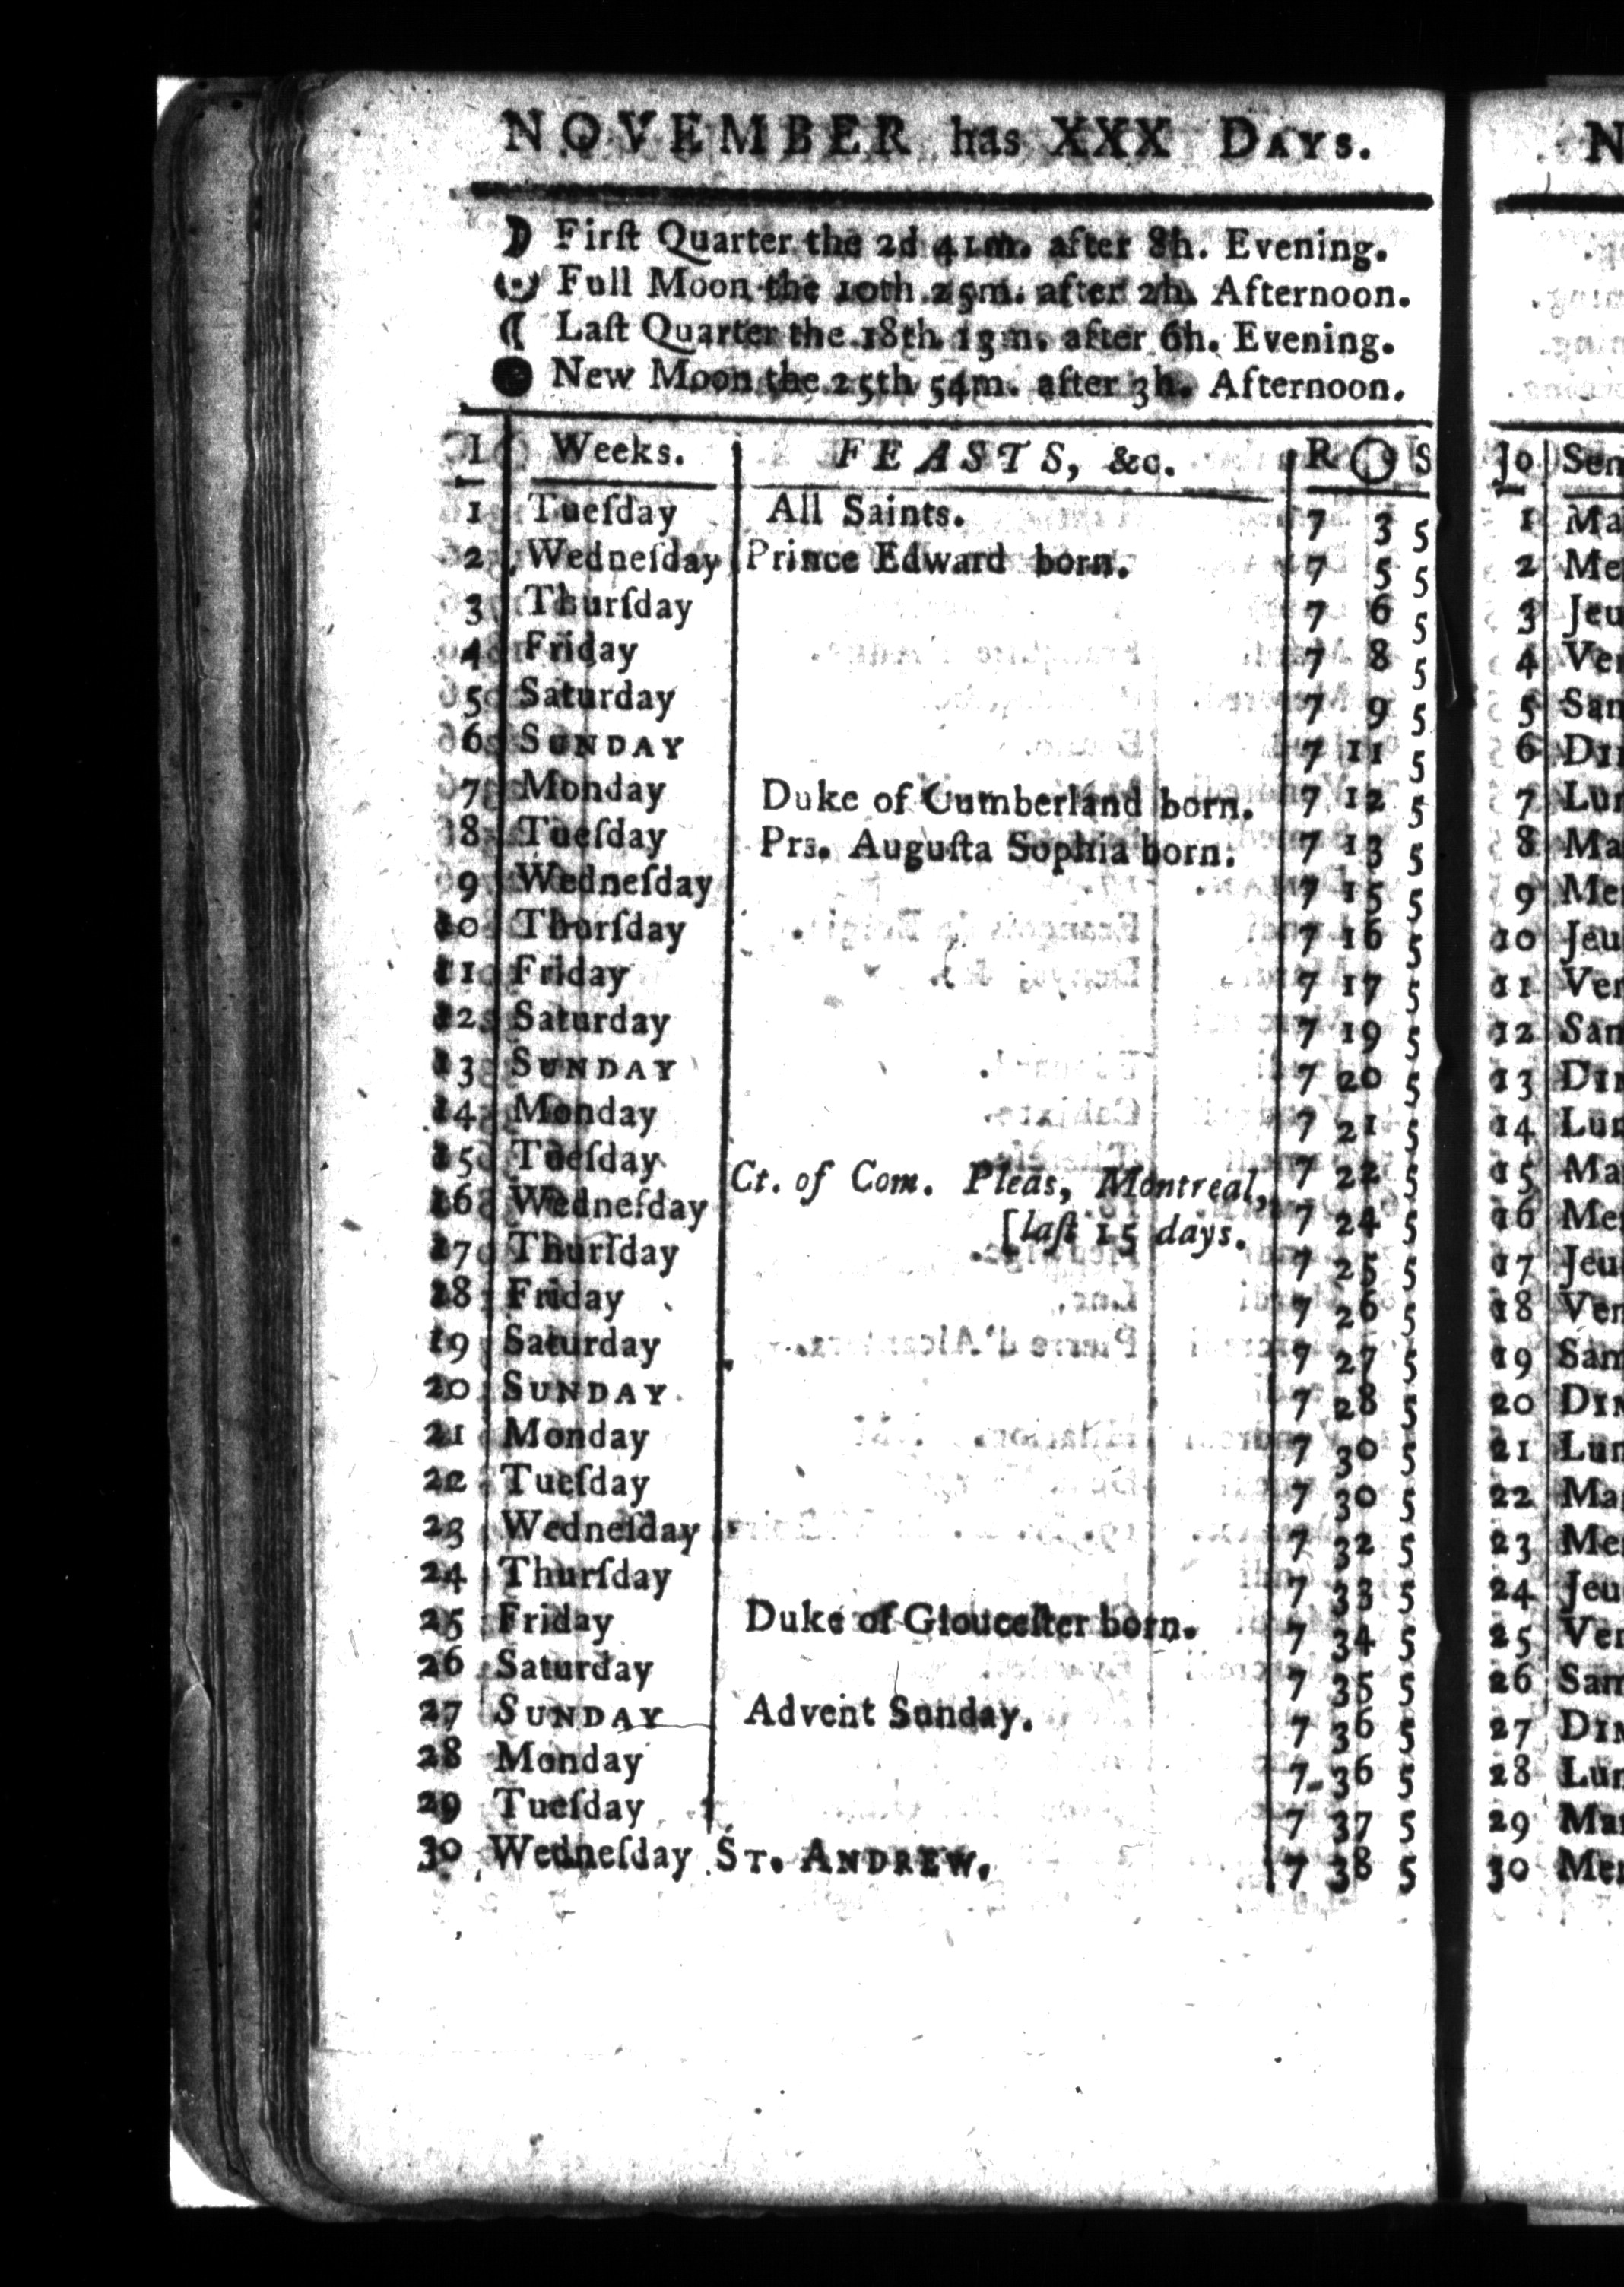 NOVEMBER has XXX DAYS.
☽ Firſt Quarter the 2d 41m. after 8h. Evening.
Full Moon the 10th 25m. after 2h. Afternoon.
☾ Laſt Quarter the 18th 13m. after 6h. Evening.
● New Moon the 25th 54m. after 3h. Afternoon.
Weeks. FEASTS, &c. R ○ S
1 Tueſday All Saints. 7 3 5
2 Wedneſday Prince Edward born. 7 5 5
3 Thurſday 7 6 5
4 Friday 7 8 5
5 Saturday 7 9 5
6 SUNDAY 7 11 5
7 Monday Duke of Cumberland born. 7 12 5
8 Tueſday Prs. Auguſta Sophia born. 7 13 5
9 Wedneſday 7 15 5
10 Thurſday 7 16 5
11 Friday 7 17 5
12 Saturday 7 19 5
13 SUNDAY 7 20 5
14 Monday 7 21 5
15 Tueſday Ct. of Com. Pleas, Montreal, 7 22 5
16 Wedneſday [laſt 15 days. 7 24 5
17 Thurſday 7 25 5
18 Friday 7 26 5
19 Saturday 7 27 5
20 SUNDAY 7 28 5
21 Monday 7 30 5
22 Tueſday 7 30 5
23 Wedneſday 7 32 5
24 Thurſday 7 33 5
25 Friday Duke of Glouceſter born. 7 34 5
26 Saturday 7 35 5
27 SUNDAY Advent Sunday. 7 36 5
28 Monday 7 36 5
29 Tueſday 7 37 5
30 Wedneſday ST. ANDREW. 7 38 5
N
Jo Sem
1 Ma
2 Me
3 Jeu
4 Ven
5 Sam
6 DIM
7 Lun
8 Ma
9 Me
10 Jeu
11 Ven
12 Sam
13 DIM
14 Lun
15 Ma
16 Me
17 Jeu
18 Ven
19 Sam
20 DIM
21 Lun
22 Ma
23 Me
24 Jeu
25 Ven
26 Sam
27 DIM
28 Lun
29 Ma
30 Me